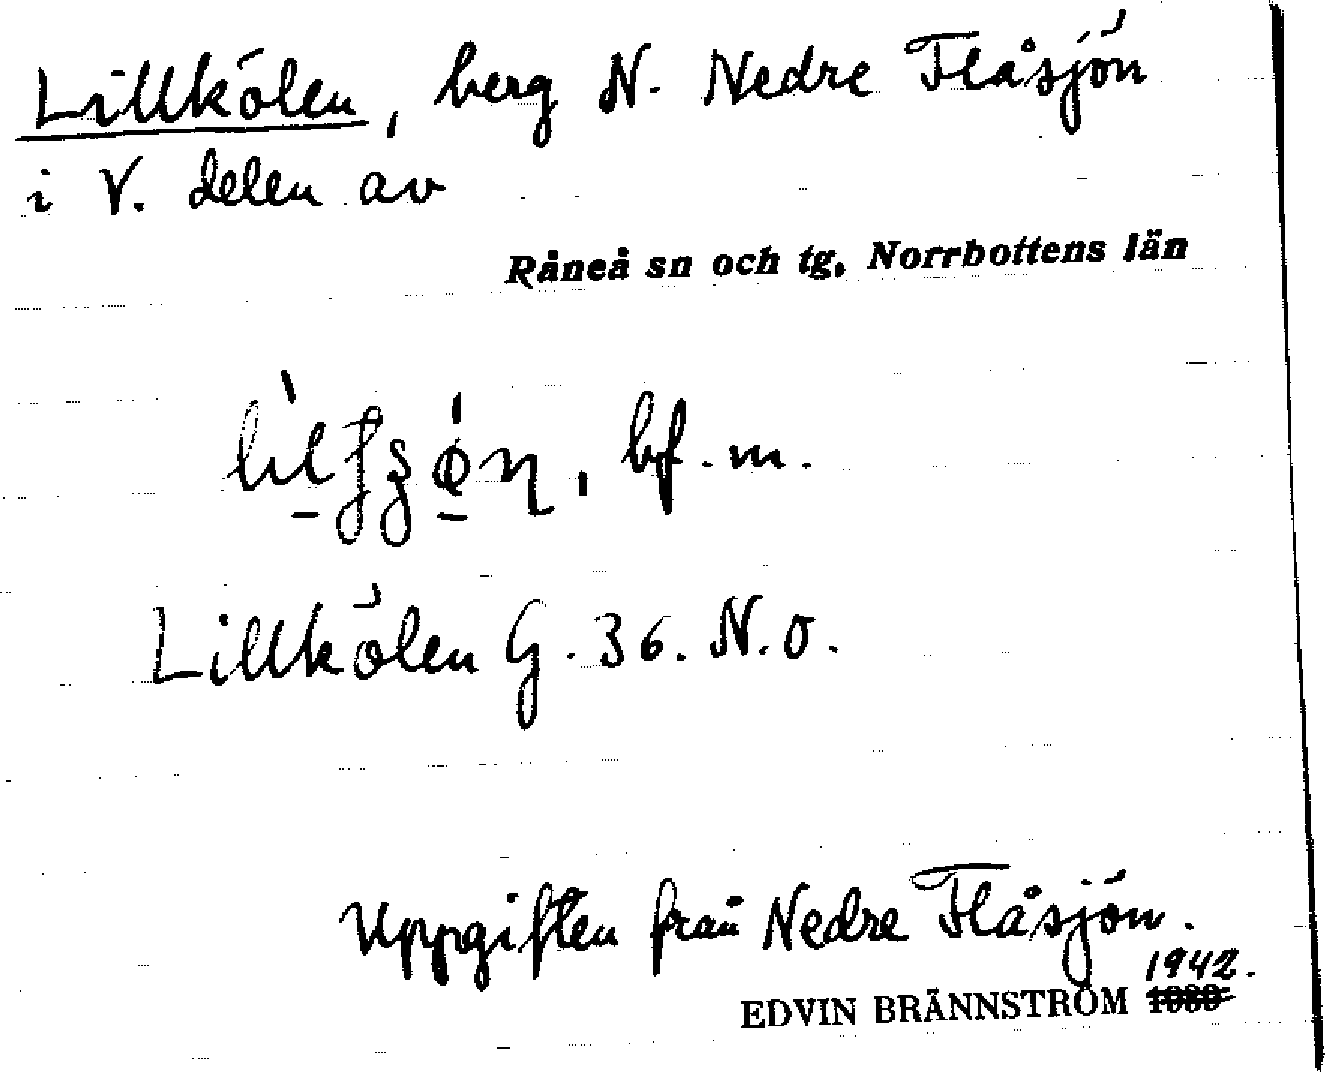 Lillkölen, berg N. Nedre Flåsjön
i V. delen av
Råneå sn och tg, Norrbottens län
bf. m.
Lillkölen G. 36. N.O.
Uppgiften från Nedre Flåsjön.
1942.
EDVIN BRÄNNSTRÖM